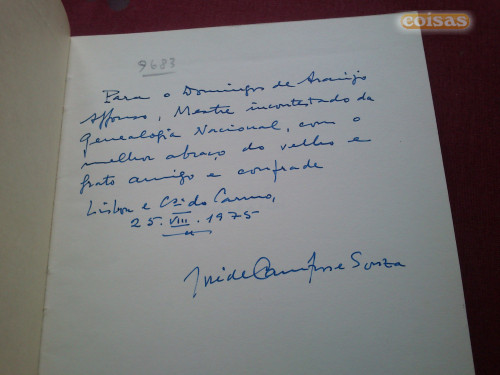 coisas
9683
Para o Domingos de Araújo
Affonso, Mestre incontestado da
Genealogia Nacional, com o
melhor abraço do velho e
grato amigo e confrade
Lisboa e Cz. do Carmo,
25.VIII.1975
José de Campos e Souza